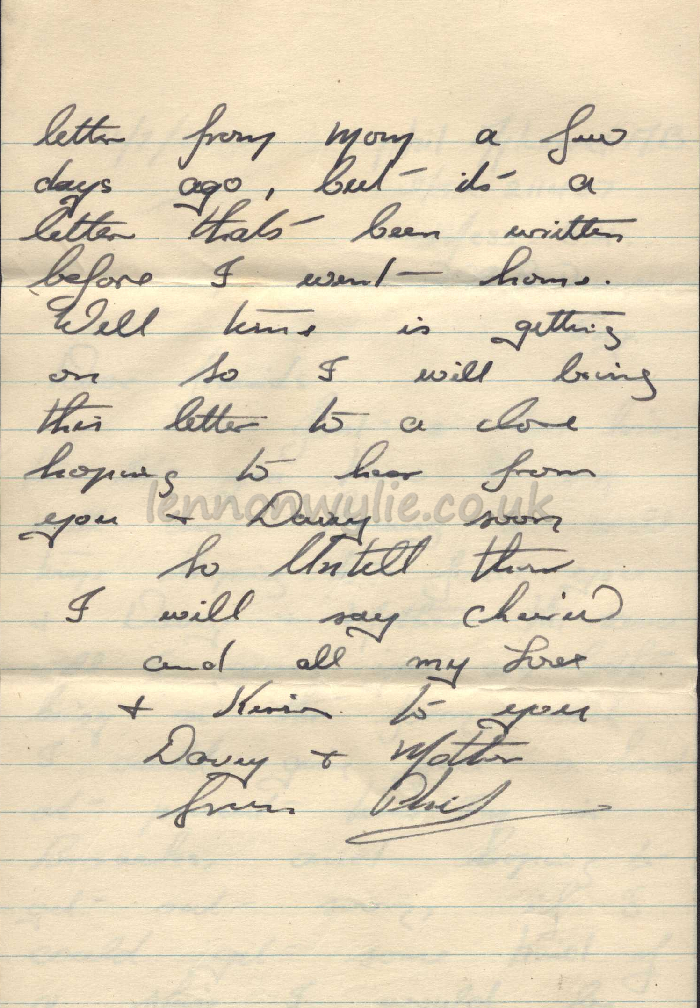 letter from Mom a few
days ago, but its a
letter thats been written
before I went home.
Well time is getting
on so I will bring
this letter to a close
hoping to hear from
lennonwylie.co.uk
you + Davey soon
So Untill then
I will say cheerio
and all my Love
+ Kisses to you
Davey + Mother
from Phil